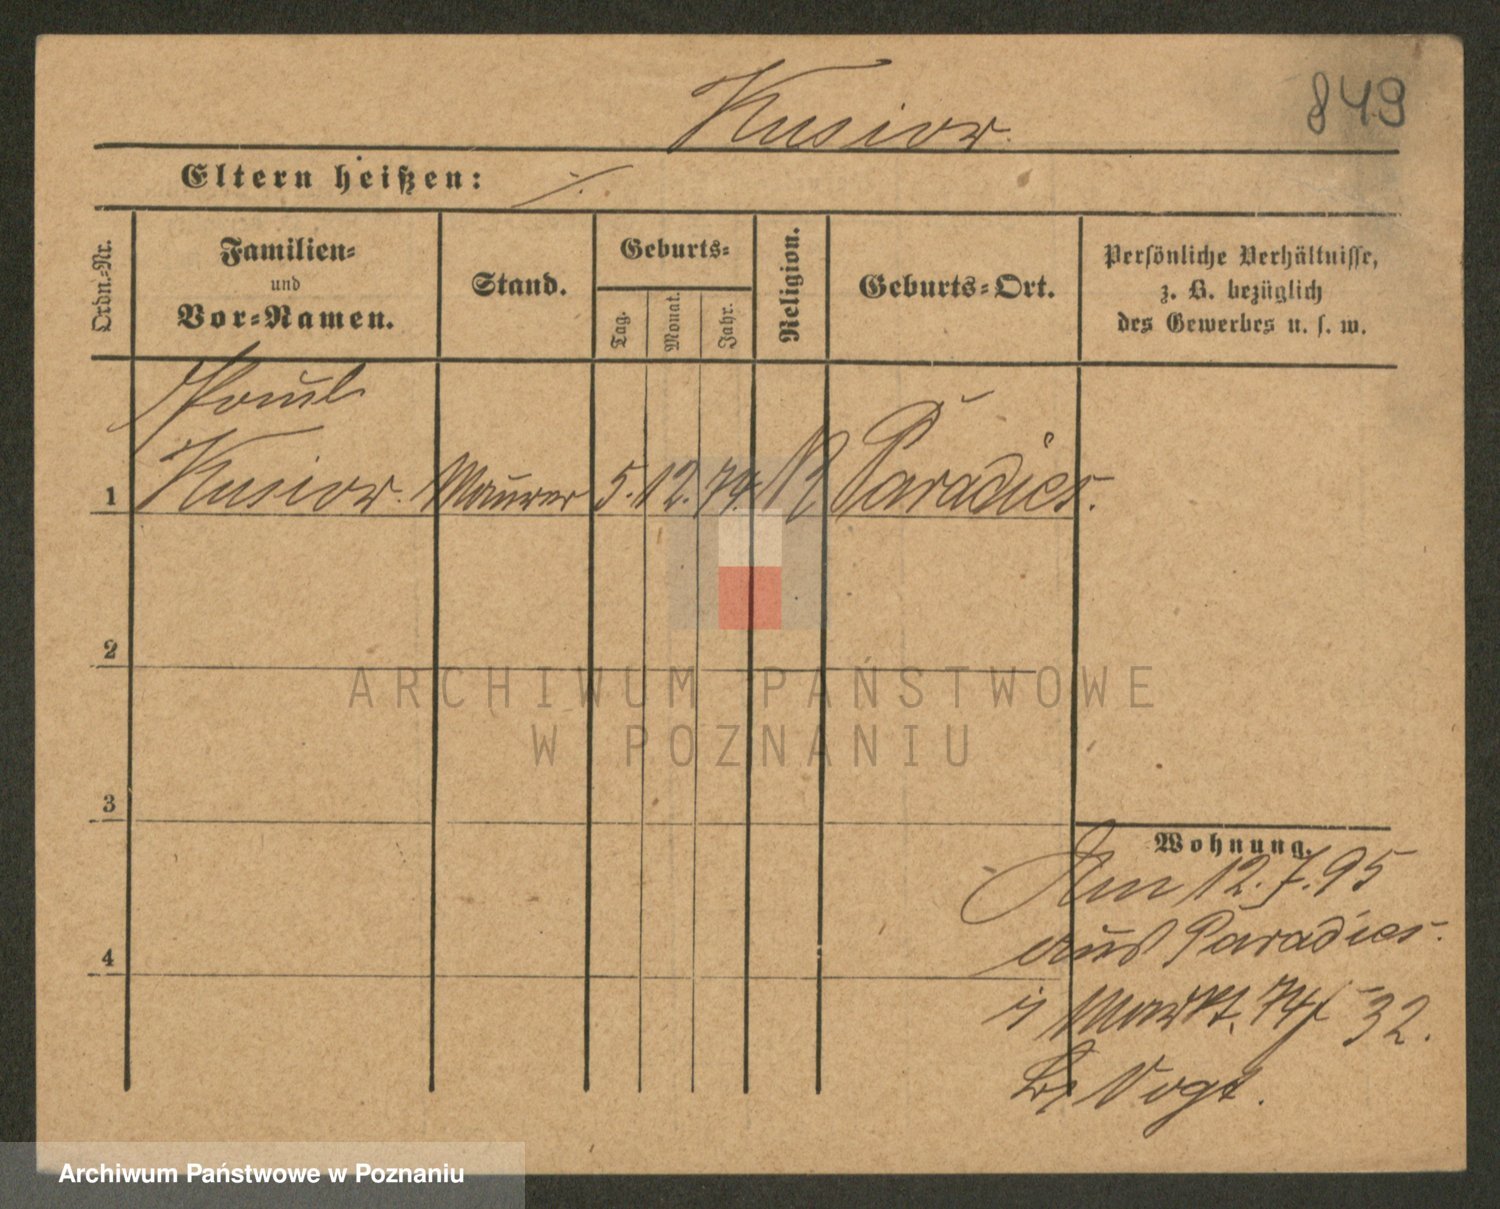 Kusior.
849
Eltern heißen: ./.
Ordn.-Nr.
Familien-
und
Vor-Namen.
Stand.
Geburts-
Tag.
Monat.
Jahr.
Religion.
Geburts-Ort.
Persönliche Verhältnisse,
z. B. bezüglich
des Gewerbes u. s. w.
Paul
1 Kusior. Maurer 5. 12. 74. K Paradies.
2
3
4
Wohnung.
Am 12.7.95
aus Paradies.
Markt. 74/ 32.
b/ Vogt.
ARCHIWUM PAŃSTWOWE
W POZNANIU
Archiwum Państwowe w Poznaniu